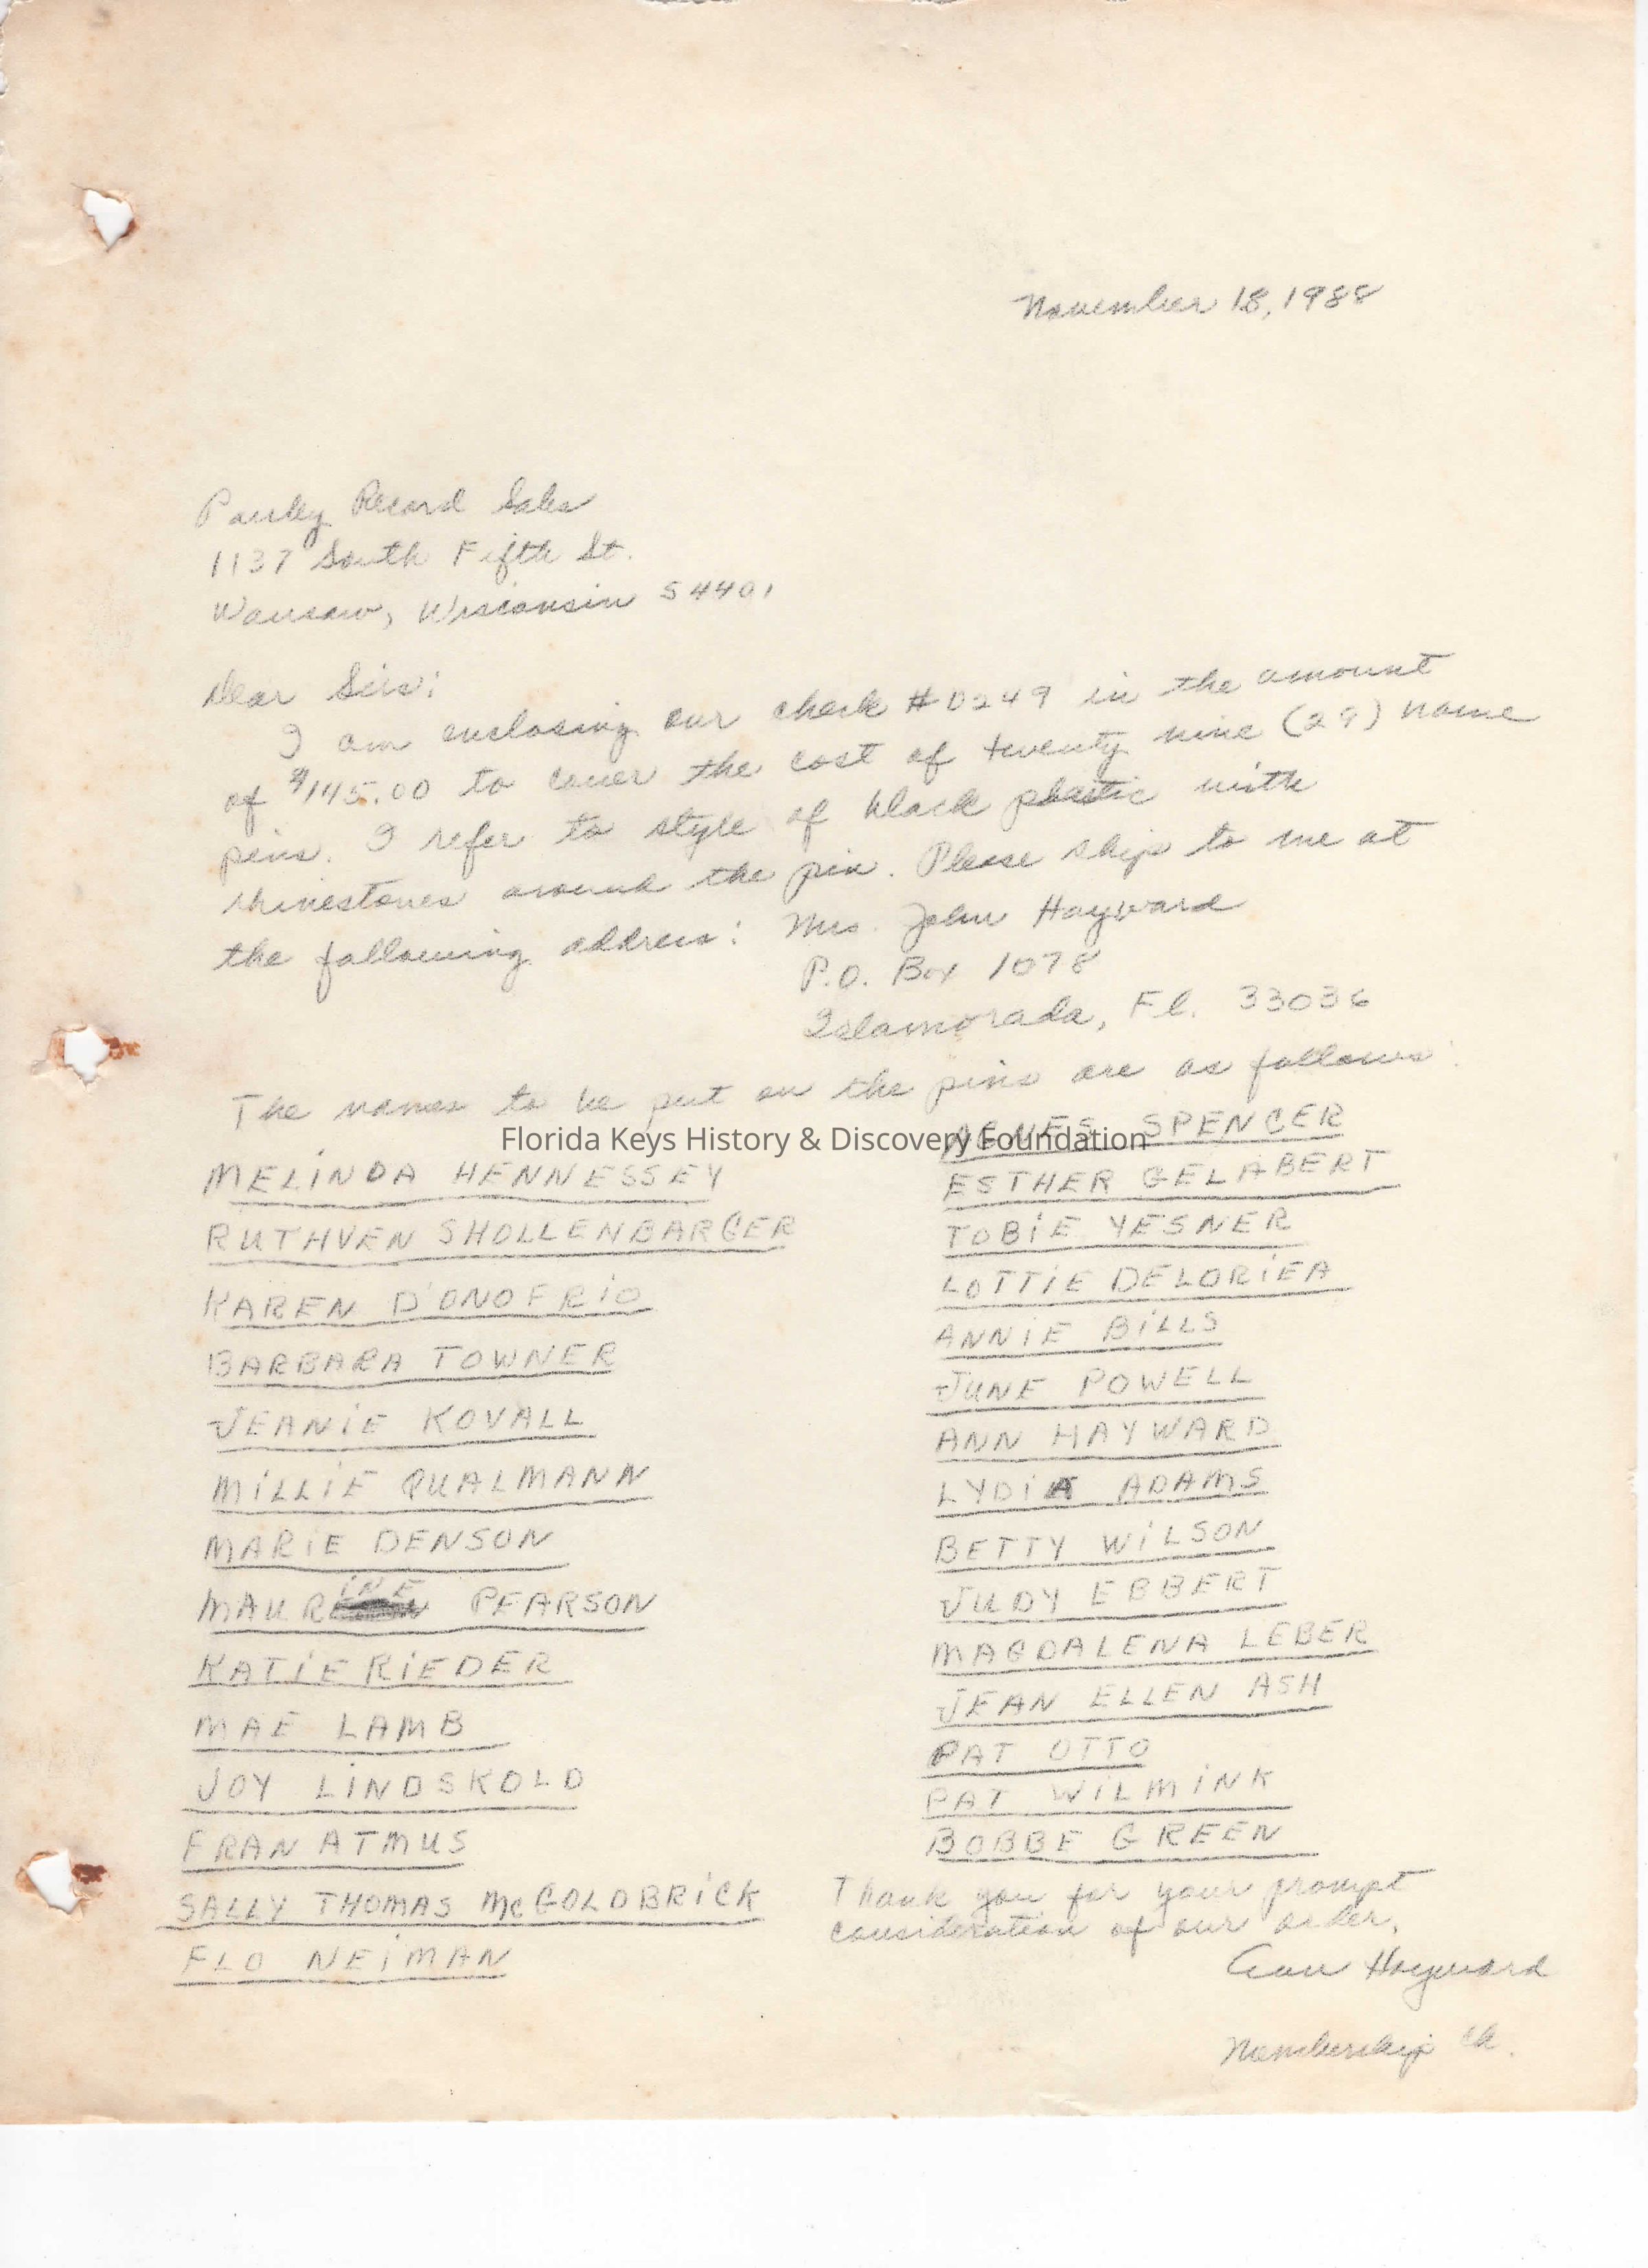 November 18, 1988
Record Sales
1137 South Fifth St.
Wausaw, Wisconsin 54401
Dear Sirs:
I am enclosing our check #0249 in the amount
of $145.00 to cover the cost of twenty nine (29) name
pins. I refer to style of black plastic with
rhinestones around the pin. Please ship to me at
the following address: Mrs. John Hayward
P.O. Box 1078
Islamorada, Fl. 33036
The names to be put on the pins are as follows:
Florida Keys History & Discovery Foundation
MELINDA HENNESSEY
RUTHVEN SHOLLENBARGER
KAREN D'ONOFRIO
BARBARA TOWNER
JEANIE KOVALL
MILLIE QUALMANN
MARIE DENSON
MAURINE PEARSON
KATIE RIEDER
MAE LAMB
JOY LINDSKOLD
FRAN ATMUS
SALLY THOMAS McGOLDBRICK
FLO NEIMAN
AGNES SPENCER
ESTHER GELABERT
TOBIE YESNER
LOTTIE DELORIEA
ANNIE BILLS
JUNE POWELL
ANN HAYWARD
LYDIA ADAMS
BETTY WILSON
JUDY EBBERT
MAGDALENA LEBER
JEAN ELLEN ASH
PAT OTTO
PAT WILMINK
BOBBE GREEN
Thank you for your prompt
consideration of our order.
Ann Hayward
Membership Ch.